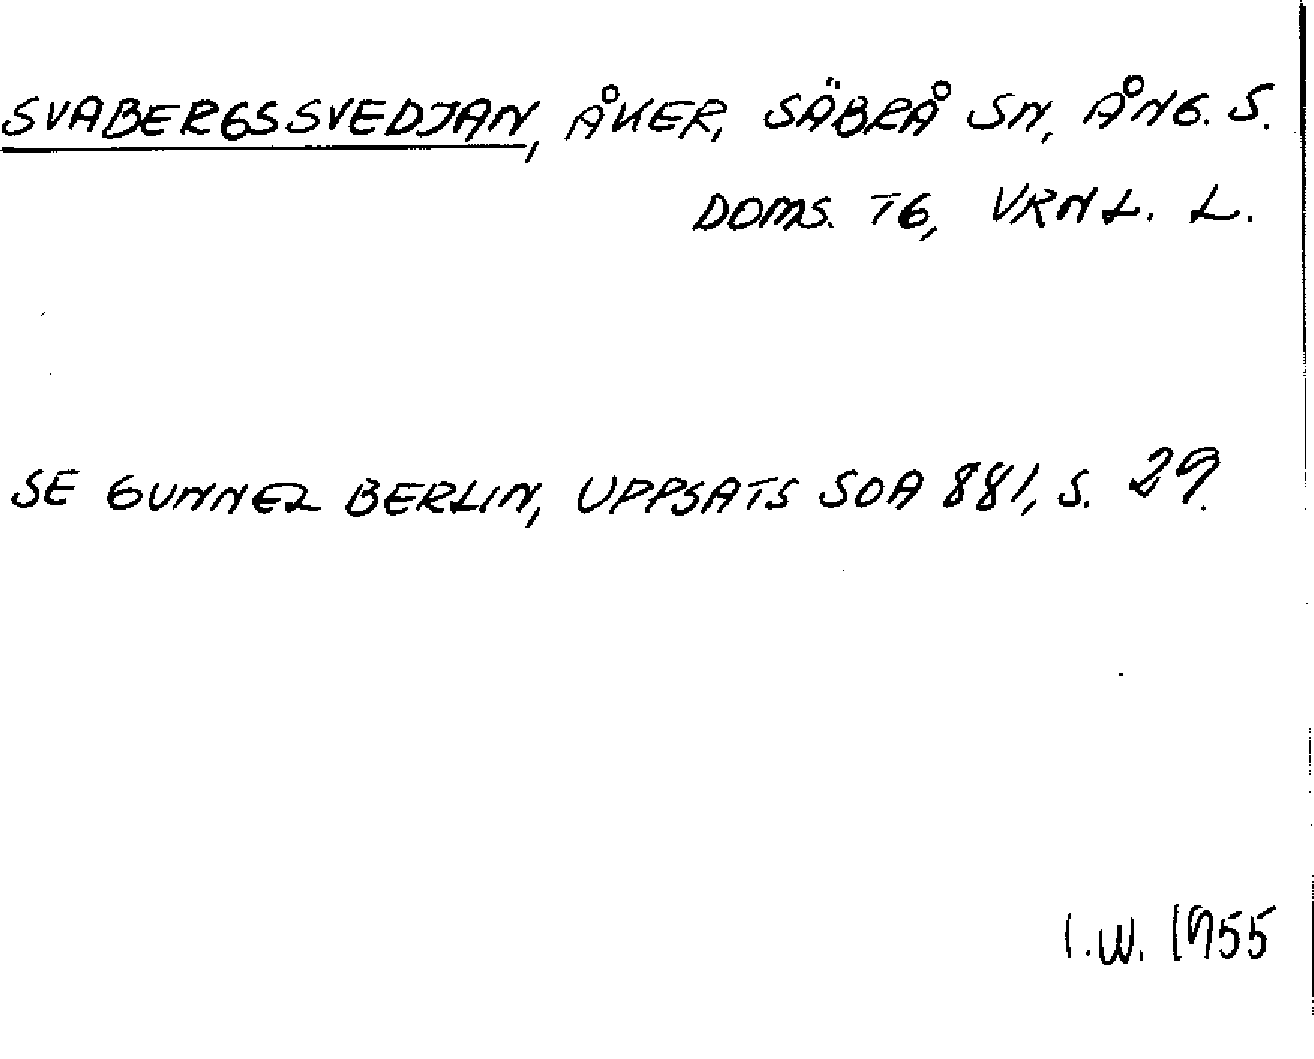 SVABERGSSVEDJAN, ÅKER, SÄBRÅ SN, ÅNG. S.
DOMS. TG, VRNL. L.
SE GUNNEL BERLIN, UPPSATS SOA 881, S. 29.
I.W. 1955